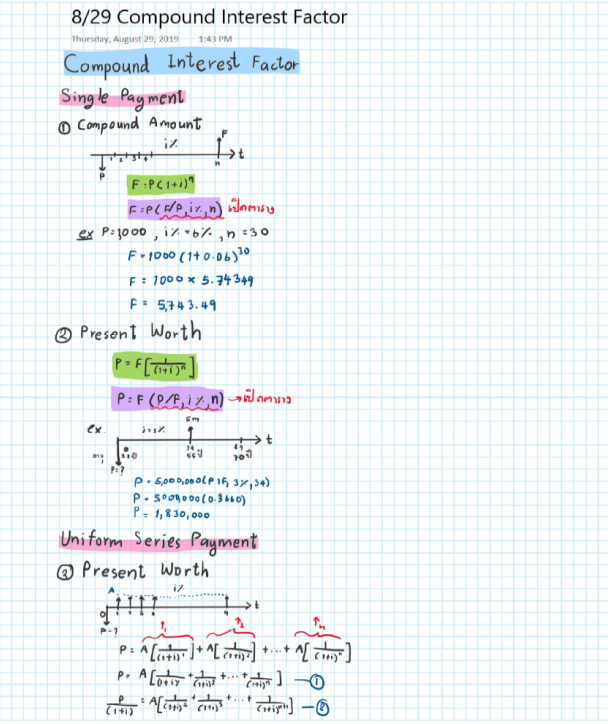 8/29 Compound Interest Factor
Thursday, August 29, 2019 1:43 PM
Compound Interest Factor
Single Payment
① Compound Amount
i%
F
t
P
n
F = P(1+i)ⁿ
F = P(F/P, i%, n) เปิดตาราง
ex P=1000, i% = 6%, n = 30
F = 1000 (1+0.06)³⁰
F = 1000 × 5.74349
F = 5,743.49
② Present Worth
P = F[1/(1+i)ⁿ]
P = F (P/F, i%, n) → เปิดตาราง
ex.
i=3%
5m
t
34
55 ปี
70 ปี
P=?
P = 5,000,000(P/F, 3%, 34)
P = 5,000,000(0.3660)
P = 1,830,000
Uniform Series Payment
③ Present Worth
A
i%
0
n
t
P=?
P = A[1/(1+i)¹] + A[1/(1+i)²] + ... + A[1/(1+i)ⁿ]
P = A[1/(1+i)¹ + 1/(1+i)² + ... + 1/(1+i)ⁿ] — ①
P/(1+i) = A[1/(1+i)² + 1/(1+i)³ + ... + 1/(1+i)ⁿ⁺¹] — ②